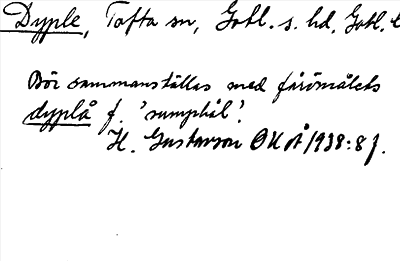 Dyple, Tofta sn, Gotl. s. hd, Gotl. l
Bör sammanställas med fårömålets
dyplå f. 'sumphål'.
H. Gustavson OUÅ 1938: 8 f.